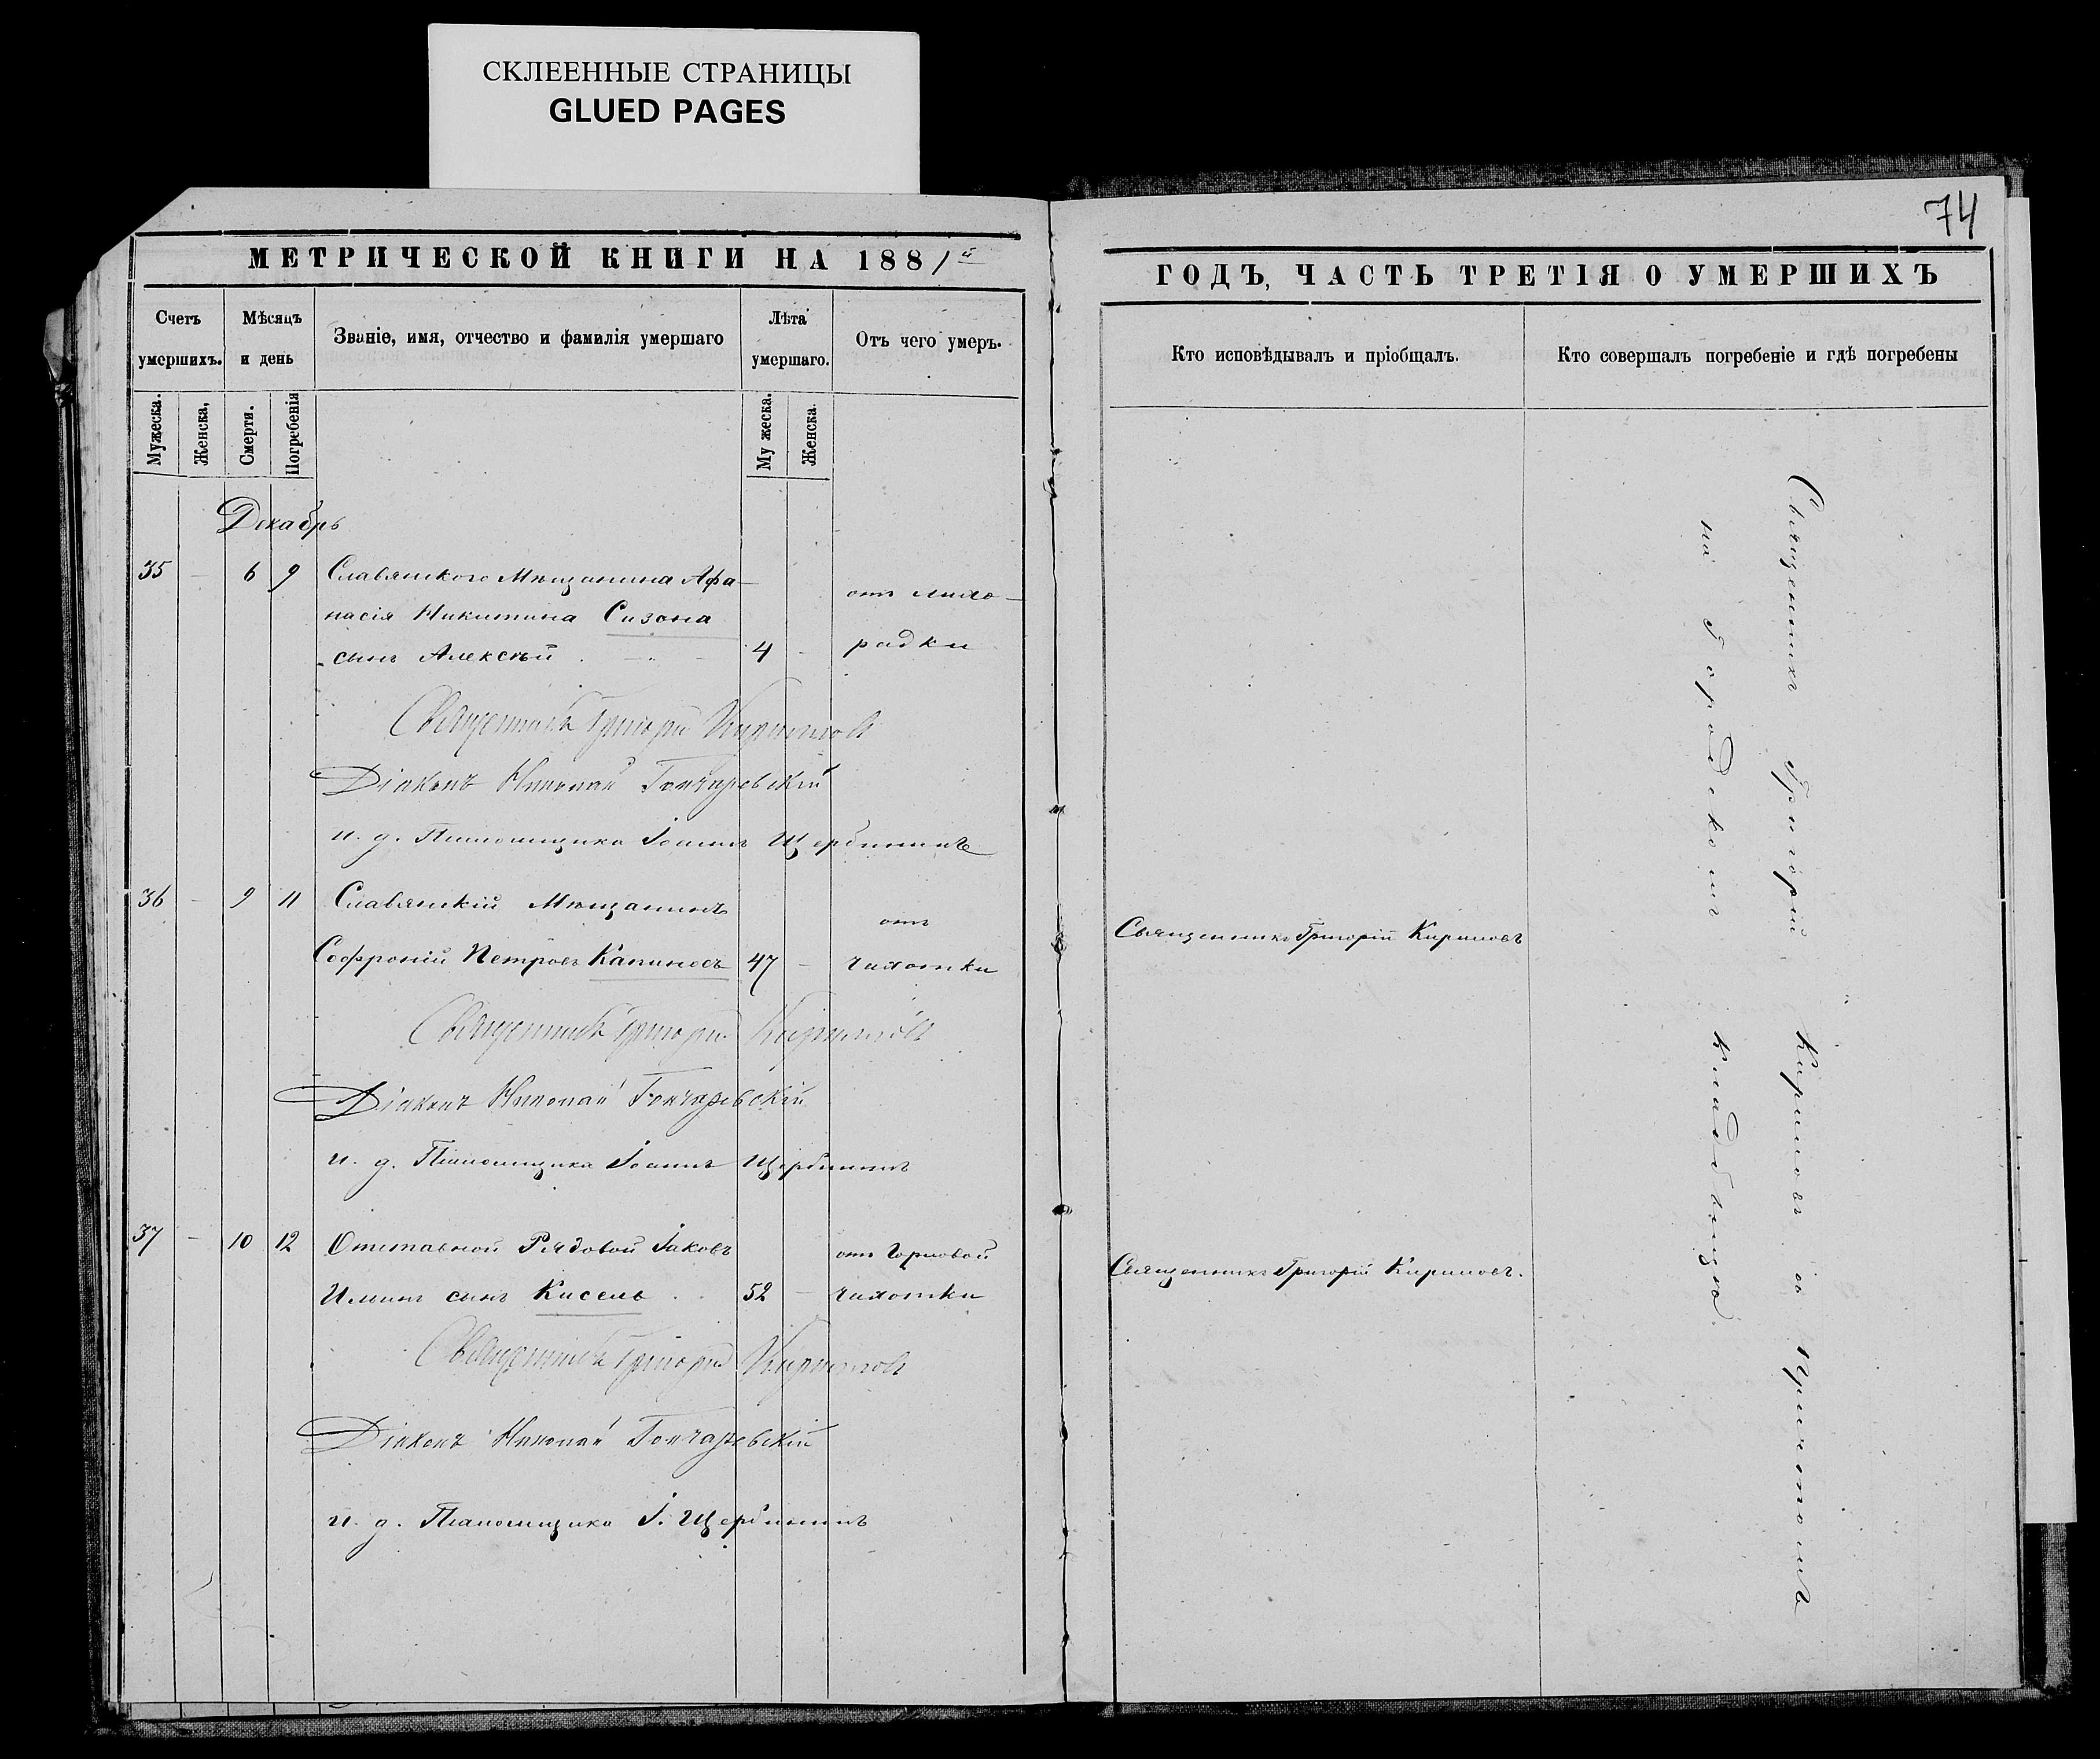 СКЛЕЕННЫЕ СТРАНИЦЫ
GLUED PAGES
74
МЕТРИЧЕСКОЙ КНИГИ НА 1881й
Счетъ умершихъ.
Мѣсяцъ и день
Званіе, имя, отчество и фамилія умершаго
Лѣта умершаго.
Отъ чего умеръ.
Мужеска.
Женска,
Смерти.
Погребенія
Му жеска.
Женска.
Декабрь
35 — 6 9 Славянскаго Мѣщанина Афа-
насія Никитина Сизона
сынъ Алексѣй 4 —
отъ лихо-
радки
Священникъ Григорій Кириловъ
Діаконъ Николай Гончаревскій
и. д. Псаломщика Іоаннъ Щербининъ
36 — 9 11 Славянскій Мѣщанинъ
Софроній Петровъ Капиносъ 47 —
отъ
чахотки
Священникъ Григорій Кириловъ
Діаконъ Николай Гончаревскій
и. д. Псаломщика Іоаннъ Щербининъ
37 — 10 12 Отставной Рядовой Іаковъ
Ильинъ сынъ Кисель 52 —
отъ горловой
чахотки
Священникъ Григорій Кириловъ
Діаконъ Николай Гончаревскій
и. д. Псаломщика І. Щербининъ
ГОДЪ, ЧАСТЬ ТРЕТІЯ О УМЕРШИХЪ
Кто исповѣдывалъ и пріобщалъ.
Кто совершалъ погребеніе и гдѣ погребены
Священникъ Григорій Кириловъ
Священникъ Григорій Кириловъ.
Священникъ Григорій Кириловъ съ причтомъ
на городскомъ кладбищѣ.